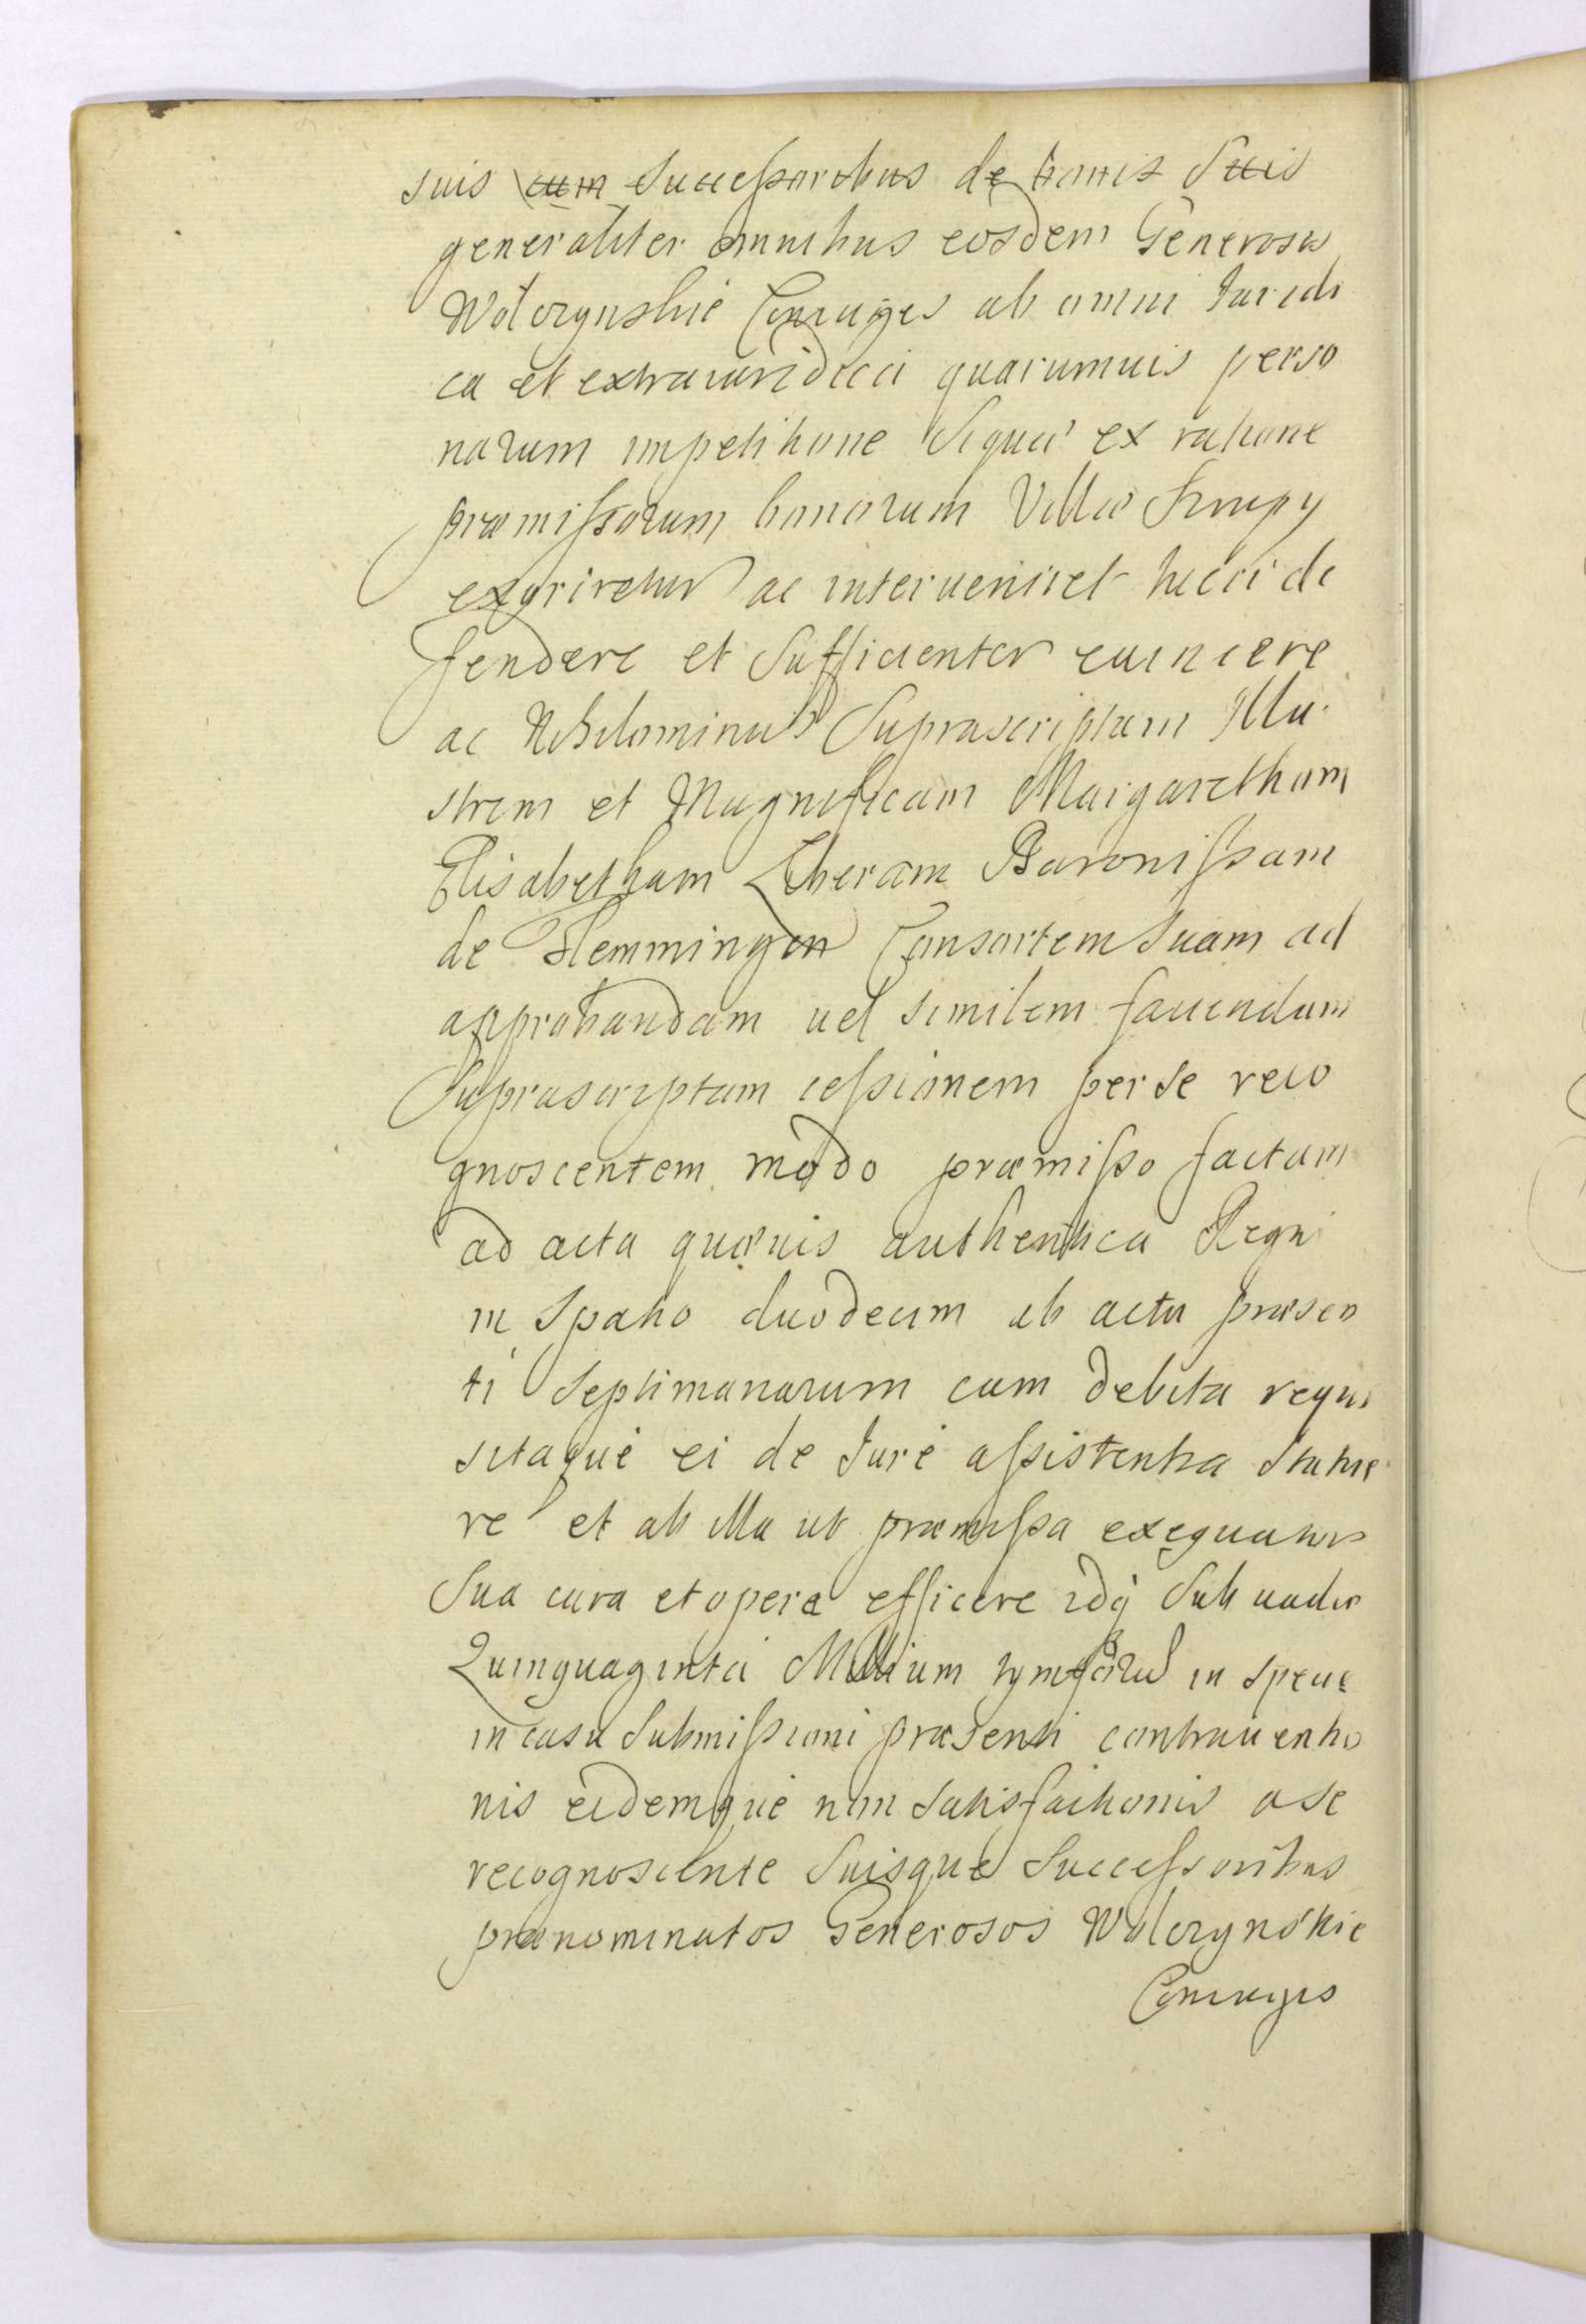 suis cum Successoribus de bonis Suis
generaliter omnibus eosdem Generosos
Wolczynskie Coniuges ab omni Juridi
ca et extraiuridica quarumuis perso
narum impetitione siquæ ex ratione
præmissorum bonorum Villæ
exoriretur ac interueniret tueri de
fendere et Sufficienter euincere
ac Nihilominus Suprascriptam Illu
strem et Magnificam Margaretham
Elisabetham Liberam Baronissam
de Flemmingen Consortem Suam ad
approbandam uel similem faciendam
Suprascriptam cessionem per se reco
gnoscentem modo præmisso factam
ad acta quæuis authentica Regni
in Spatio duodecim ab actu præsen
ti Septimanarum cum debita requi
sitaque ei de Jure assistentia statue
re et ab illa ut præmissa exequatur
Sua cura et opera efficere idq Sub uadio
Quinquaginta Millium in specie
in casu Submissioni præsenti contrauentio
nis eidemque non satisfactionis a se
recognoscente Suisque Successoribus
prænominatos Generosos Wolczynskie
Coniuges